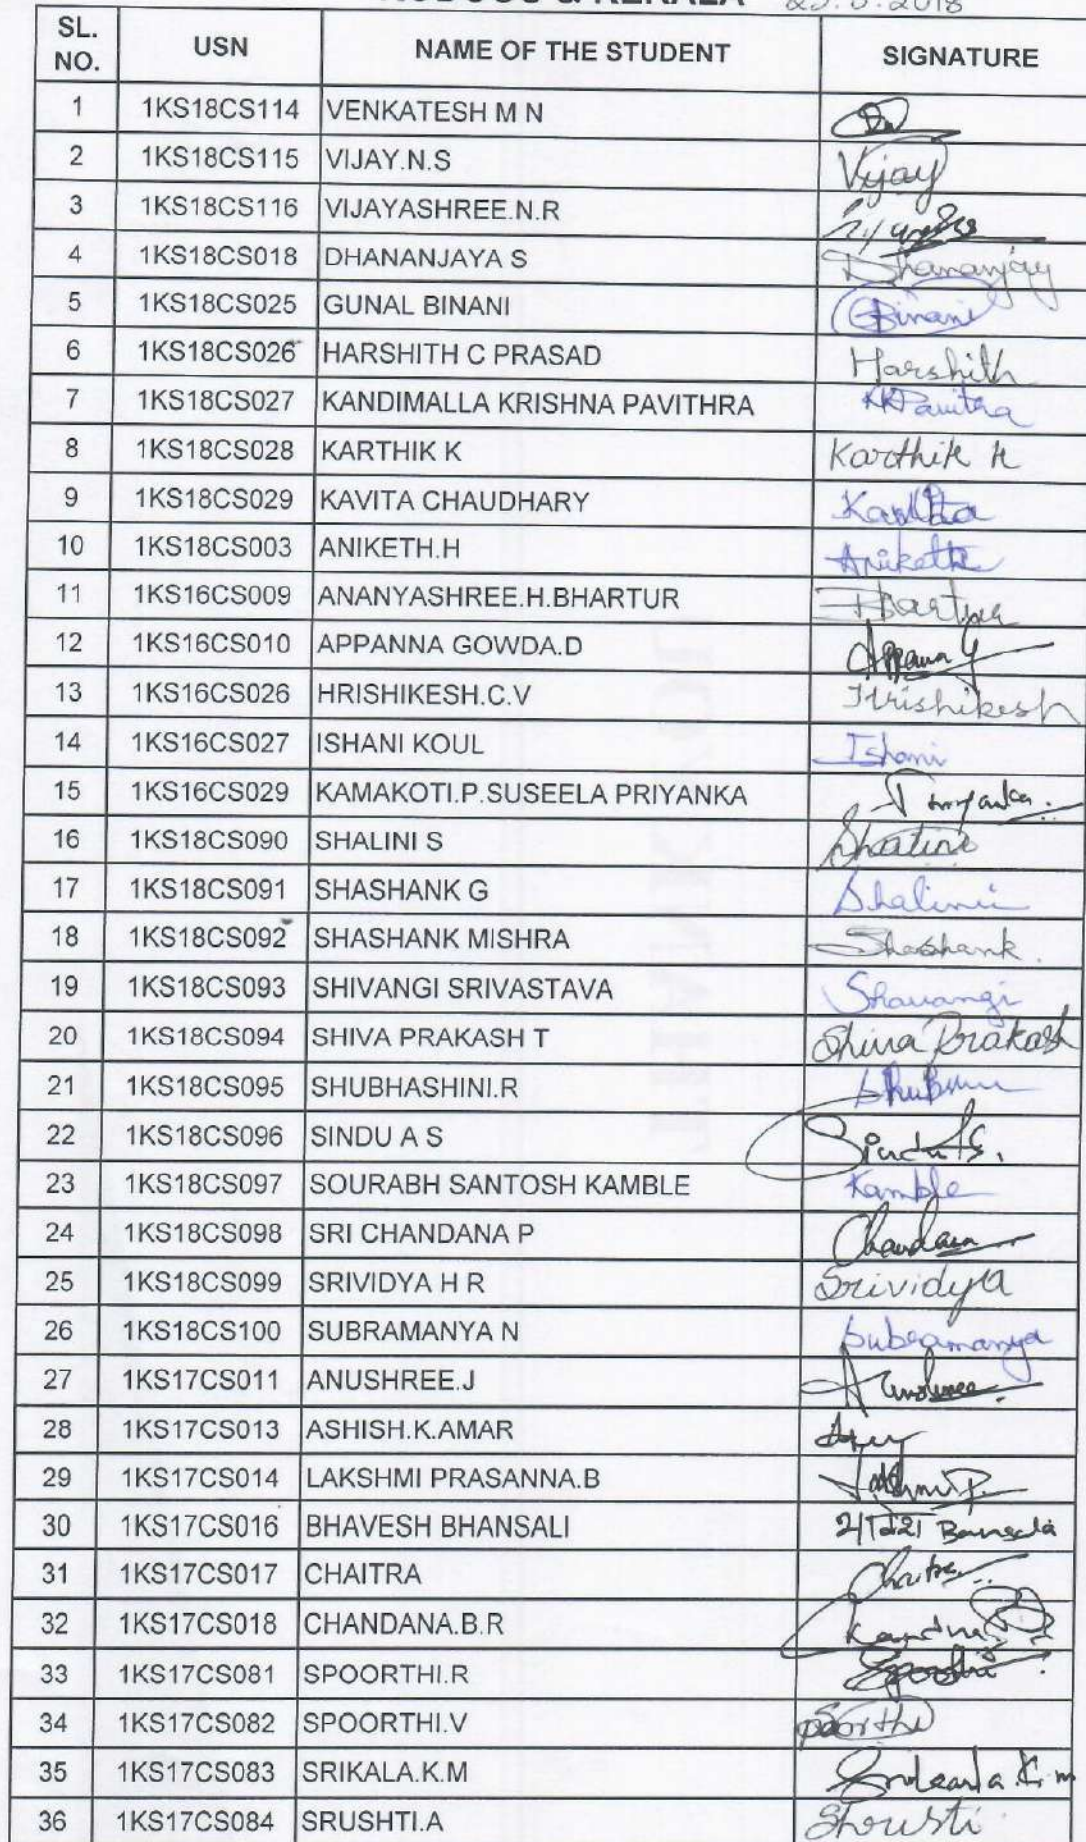 & KERALA
SL. NO. USN NAME OF THE STUDENT SIGNATURE
1 1KS18CS114 VENKATESH M N
2 1KS18CS115 VIJAY.N.S Vijay
3 1KS18CS116 VIJAYASHREE.N.R
4 1KS18CS018 DHANANJAYA S Dhananjay
5 1KS18CS025 GUNAL BINANI Binani
6 1KS18CS026 HARSHITH C PRASAD Harshith
7 1KS18CS027 KANDIMALLA KRISHNA PAVITHRA
8 1KS18CS028 KARTHIK K Karthik K
9 1KS18CS029 KAVITA CHAUDHARY
10 1KS18CS003 ANIKETH.H Aniketh
11 1KS16CS009 ANANYASHREE.H.BHARTUR
12 1KS16CS010 APPANNA GOWDA.D
13 1KS16CS026 HRISHIKESH.C.V Hrishikesh
14 1KS16CS027 ISHANI KOUL Ishani
15 1KS16CS029 KAMAKOTI.P.SUSEELA PRIYANKA
16 1KS18CS090 SHALINI S
17 1KS18CS091 SHASHANK G Shalini
18 1KS18CS092 SHASHANK MISHRA Shashank
19 1KS18CS093 SHIVANGI SRIVASTAVA
20 1KS18CS094 SHIVA PRAKASH T Shiva Prakash
21 1KS18CS095 SHUBHASHINI.R
22 1KS18CS096 SINDU A S
23 1KS18CS097 SOURABH SANTOSH KAMBLE Kamble
24 1KS18CS098 SRI CHANDANA P Chandana
25 1KS18CS099 SRIVIDYA H R Srividya
26 1KS18CS100 SUBRAMANYA N Subramanya
27 1KS17CS011 ANUSHREE.J
28 1KS17CS013 ASHISH.K.AMAR
29 1KS17CS014 LAKSHMI PRASANNA.B
30 1KS17CS016 BHAVESH BHANSALI
31 1KS17CS017 CHAITRA Chaitra
32 1KS17CS018 CHANDANA.B.R
33 1KS17CS081 SPOORTHI.R
34 1KS17CS082 SPOORTHI.V
35 1KS17CS083 SRIKALA.K.M
36 1KS17CS084 SRUSHTI.A